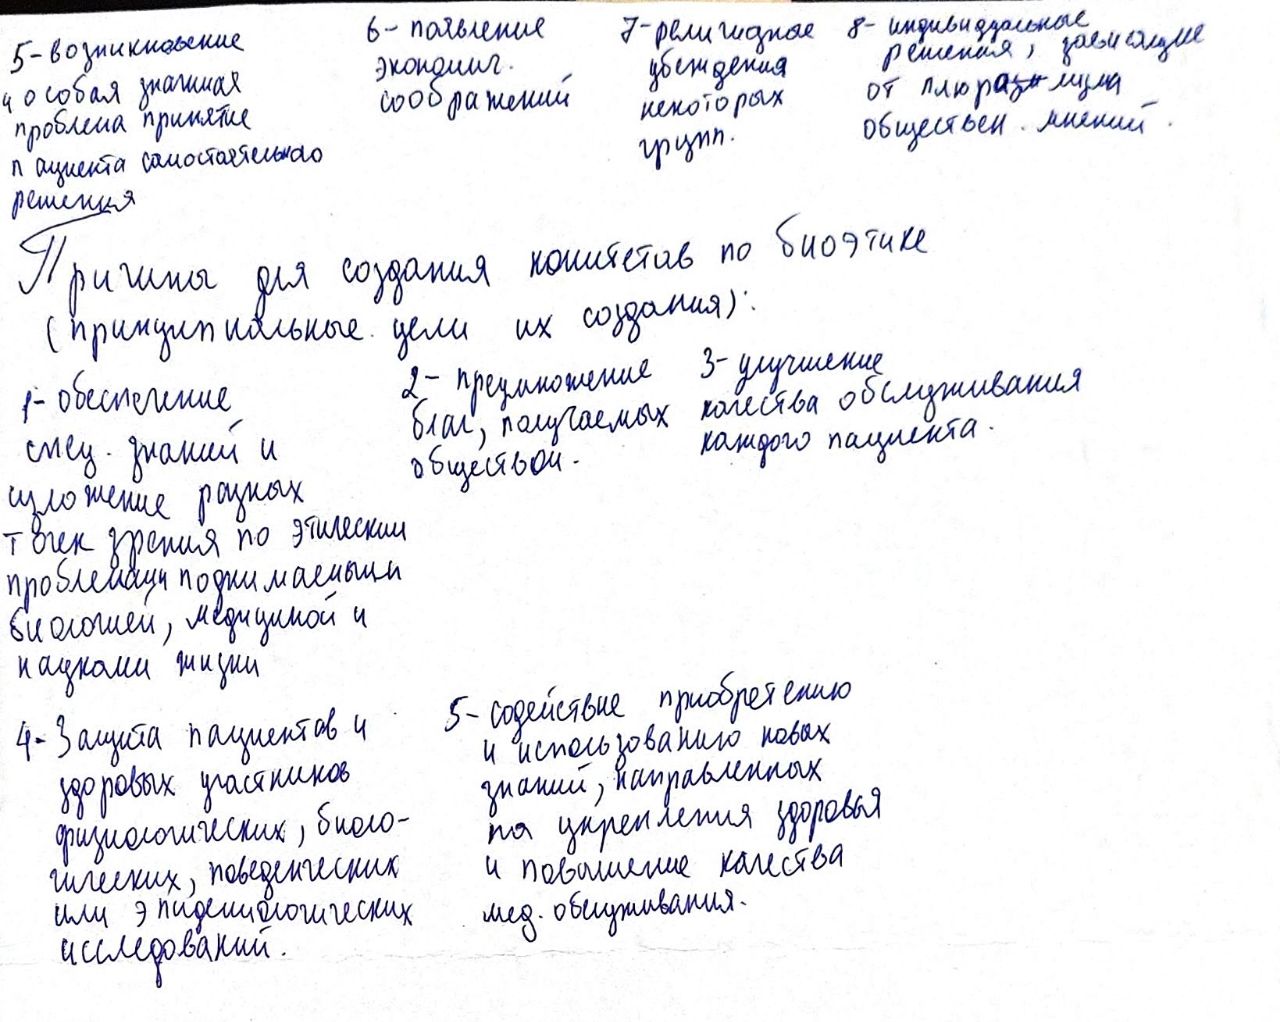 5- возникновение
и особая значимая
проблема принятие
пациента самостоятельного
решения
6- появление
экономич.
соображений
7- религиозное
убеждения
некоторых
групп.
8- индивидуальные
решения, зависящие
от плюрализма
обществен. мнений.
Причины для создания комитетов по биоэтике
(принципиальные цели их создания):
1- обеспечение
спец. знаний и
изложение разных
точек зрения по этическим
проблемами поднимаемыми
биологией, медициной и
науками жизни
2- преумножение
благ, получаемых
обществом.
3- улучшение
качества обслуживания
каждого пациента.
4- Защита пациентов и
здоровых участников
физиологических, биоло-
гических, поведенческих
или эпидемиологических
исследований.
5- содействие приобретению
и использованию новых
знаний, направленных
на укрепления здоровья
и повышение качества
мед. обслуживания.